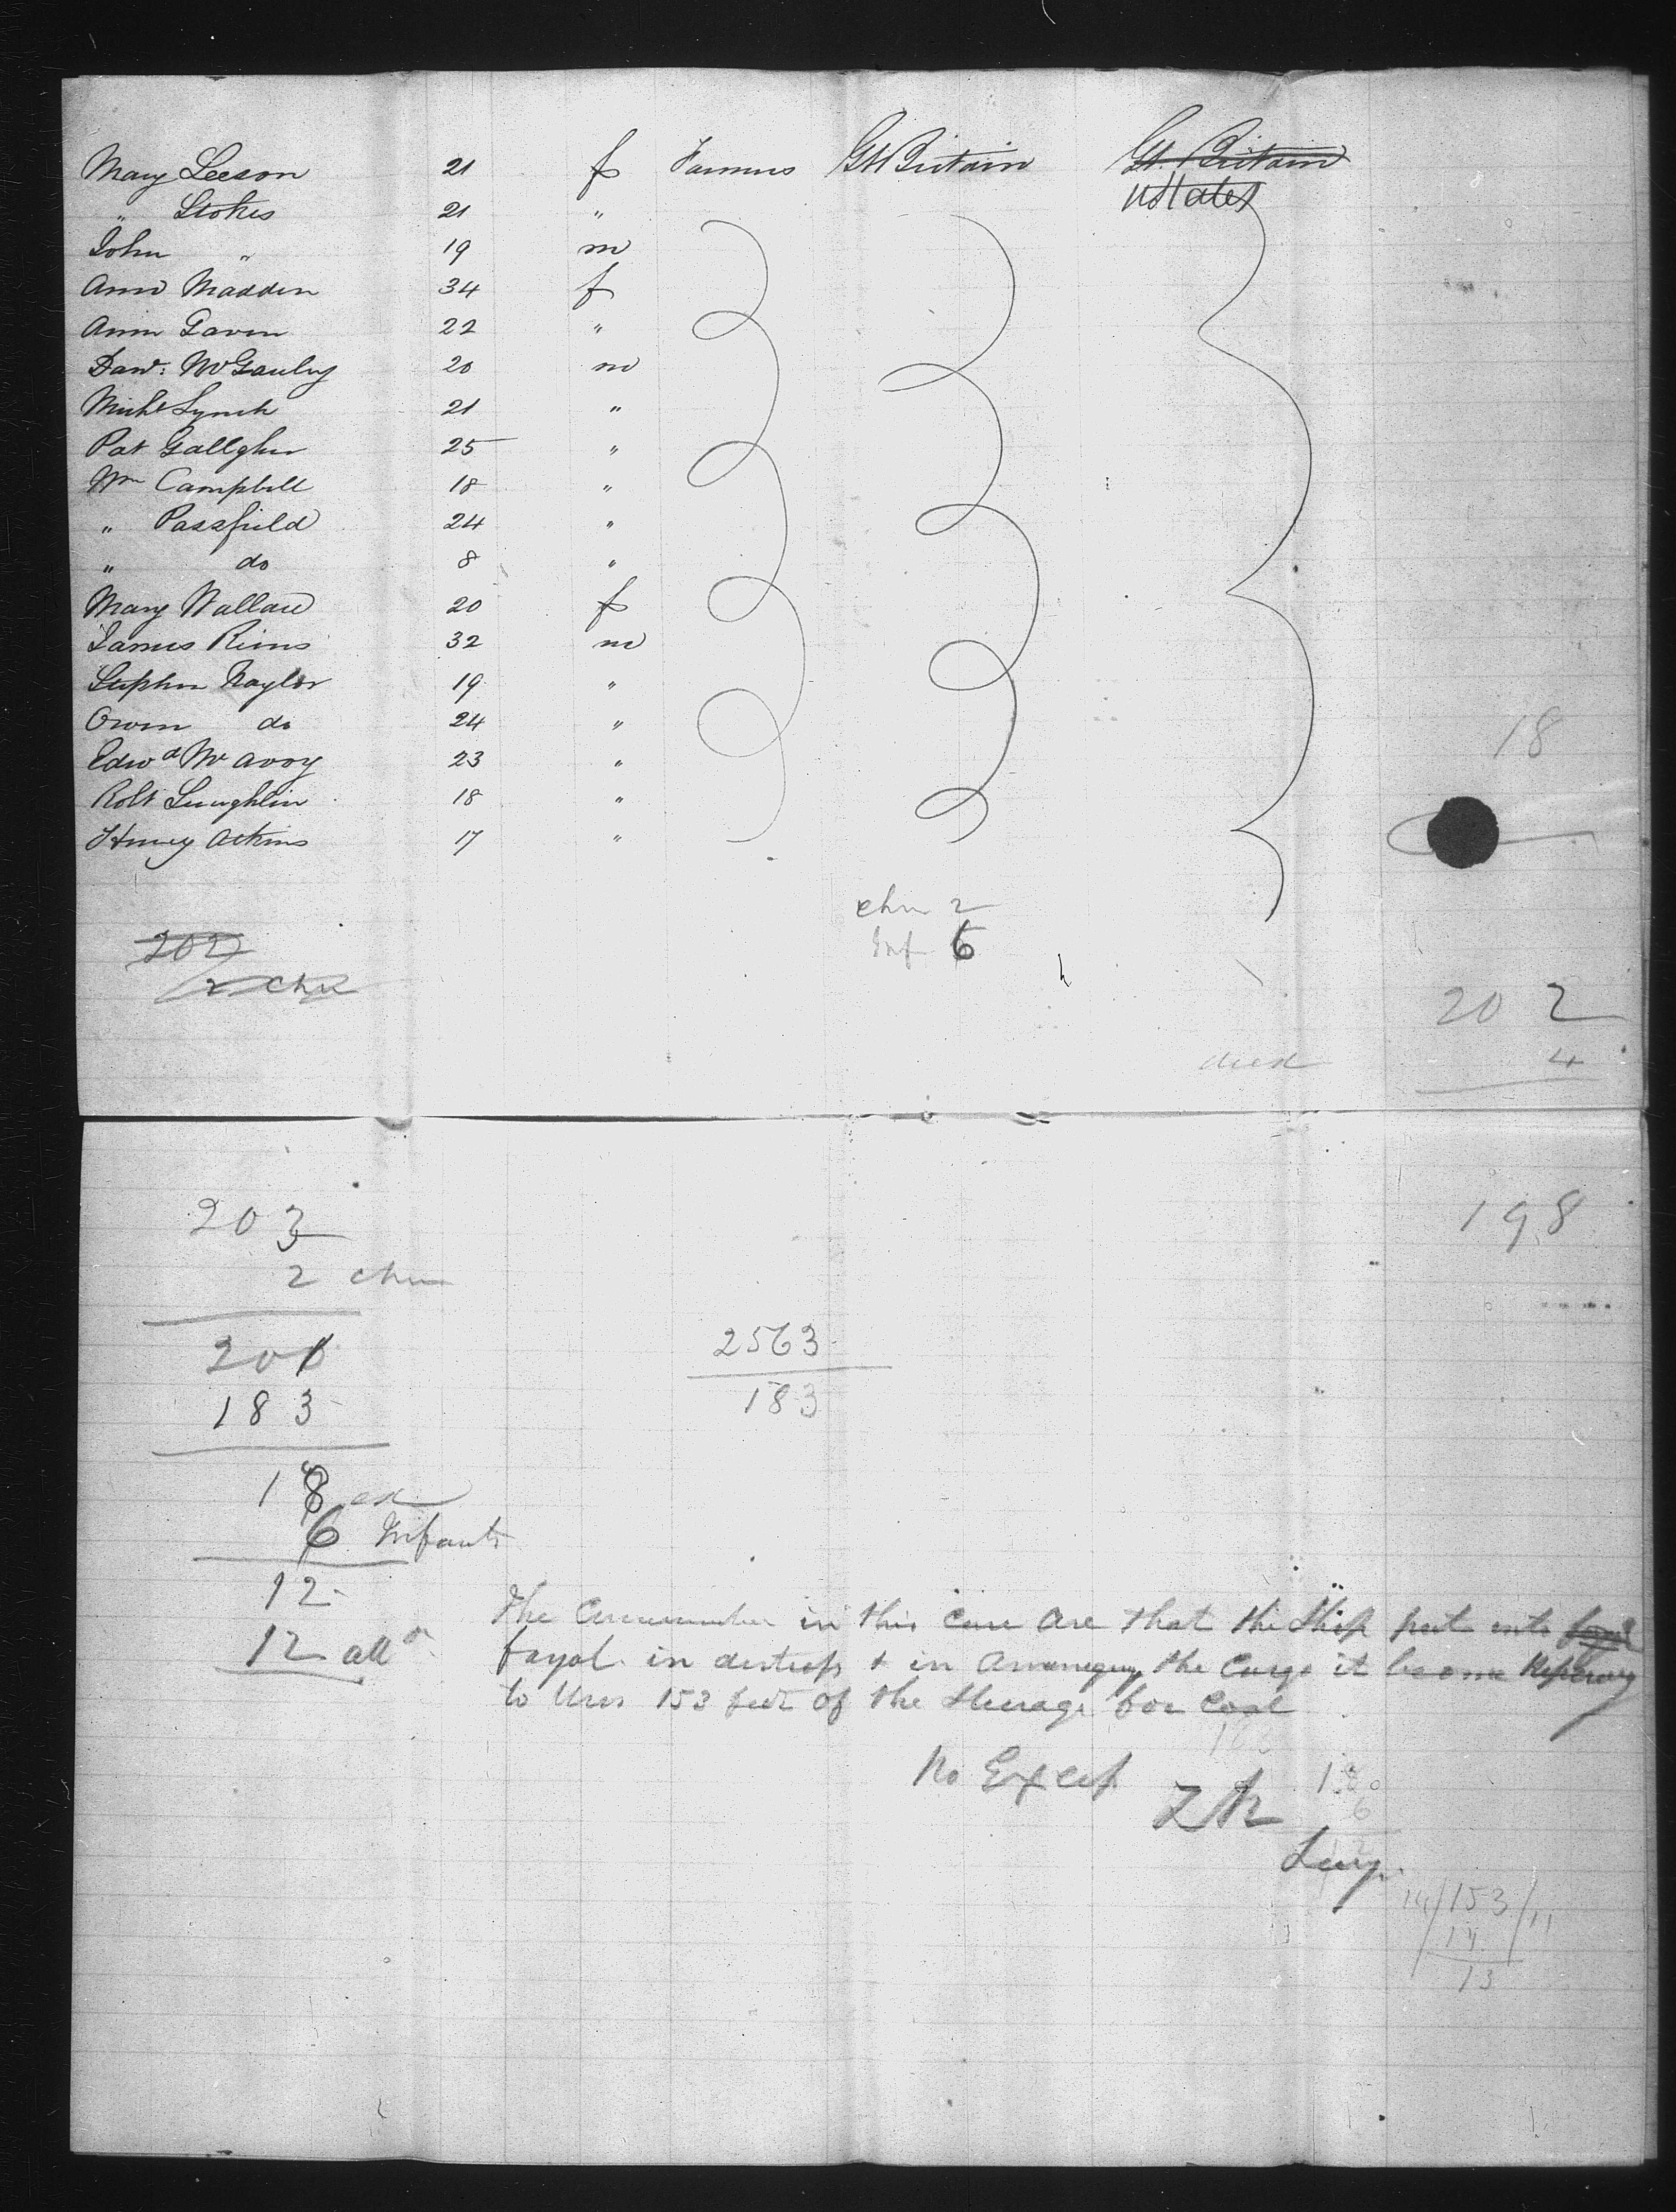 Mary Leeson 21 f Farmers Gt Britain Gt. Britain
" Stokes 21 " UStates
John " 19 m
Ann Madden 34 f
Ann Gavin 22 "
Danl: McGauley 20 m
Michl Lynch 21 "
Pat Gallgher 25 "
Wm Campbell 18 "
" Passfield 24 "
" do 8 "
Mary Wallace 20 f
James Rims 32 m
Stephen Naylor 19 "
Owen do 24 " 18
Edwd McAvoy 23 "
Robt Lunghlin 18 "
Henry Atkins 17 "
chn 2
202 Inf 6
2 chn
20 2
died 4
203 198
2 chn
201
2563
183 183
18 ex
6 Infants
12
The in this case are that the Ship put into
12 alln Fayal in distress & in the Cargo it become
to Use 153 feet of the Steerage for Coal
No Excess 18
6
ZR
14/153/11
14
13